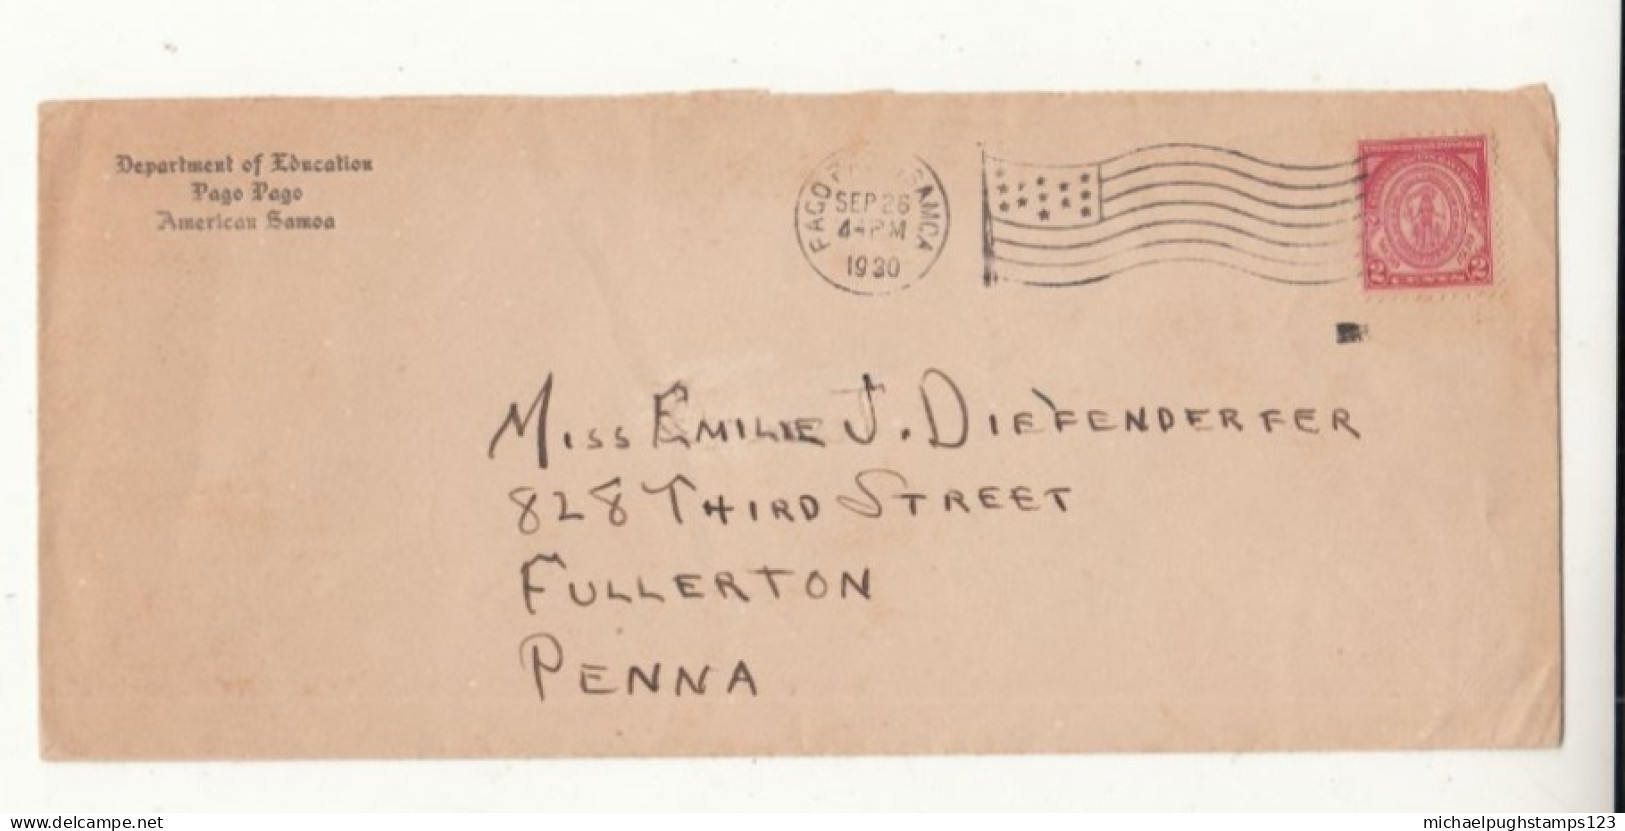 Department of Education
Pago Pago
American Samoa
PAGO SAMOA
SEP 26
4-PM
1930
2 CENTS 2
MISS EMILIE J. DIEFENDERFER
828 THIRD STREET
FULLERTON
PENNA
delcampe.net
michaelpughstamps123